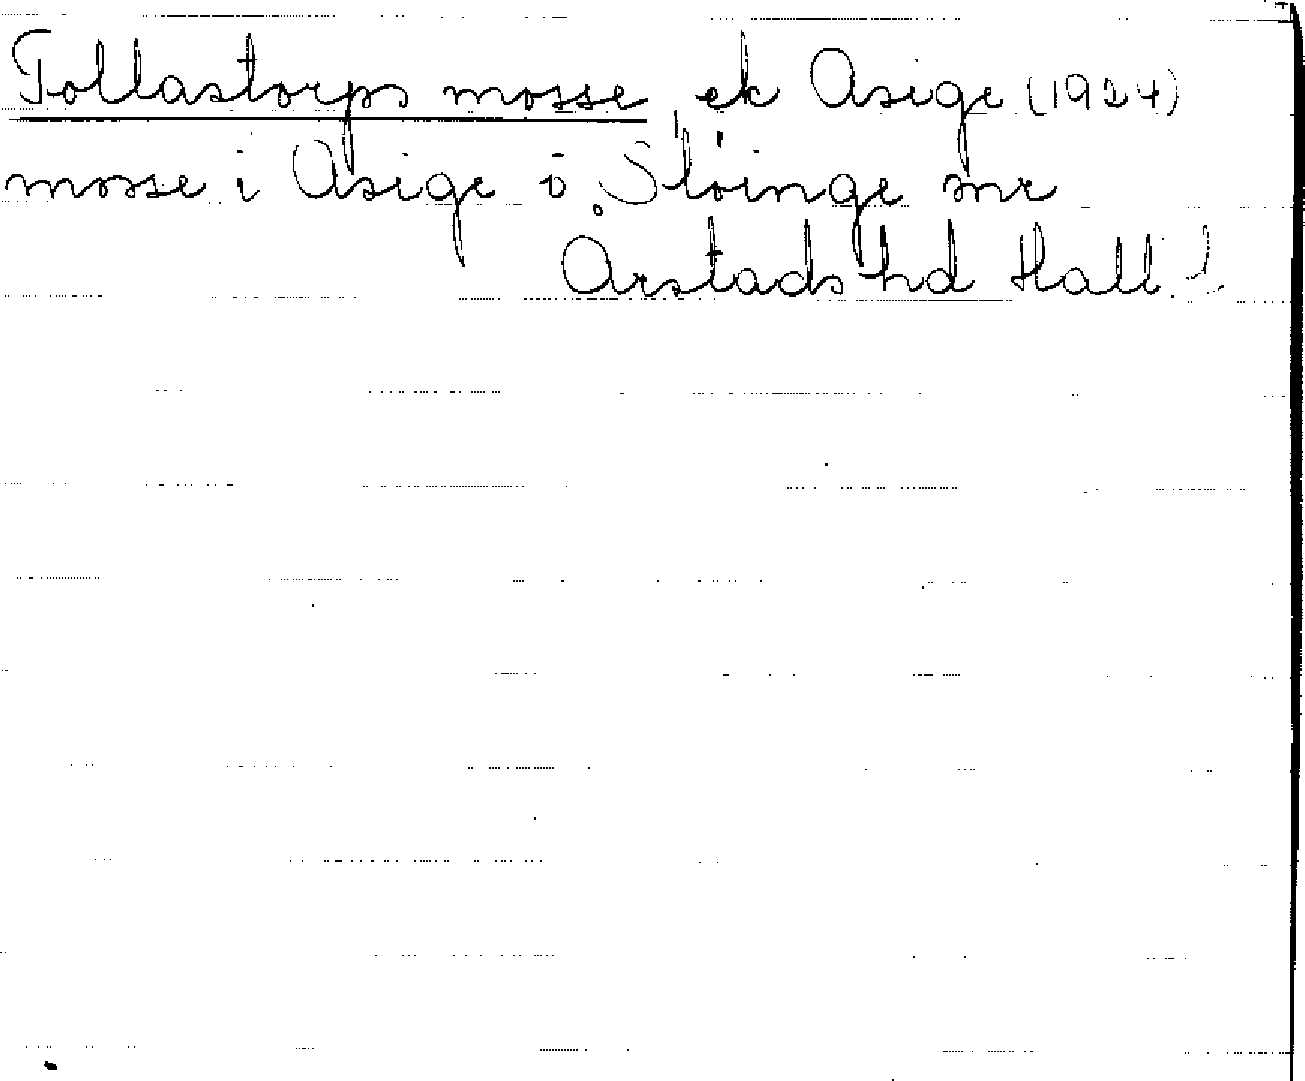 Tollastorps mosse, ek Asige (1924)
mosse i Asige o Slöinge snr
Årstads hd Hall.